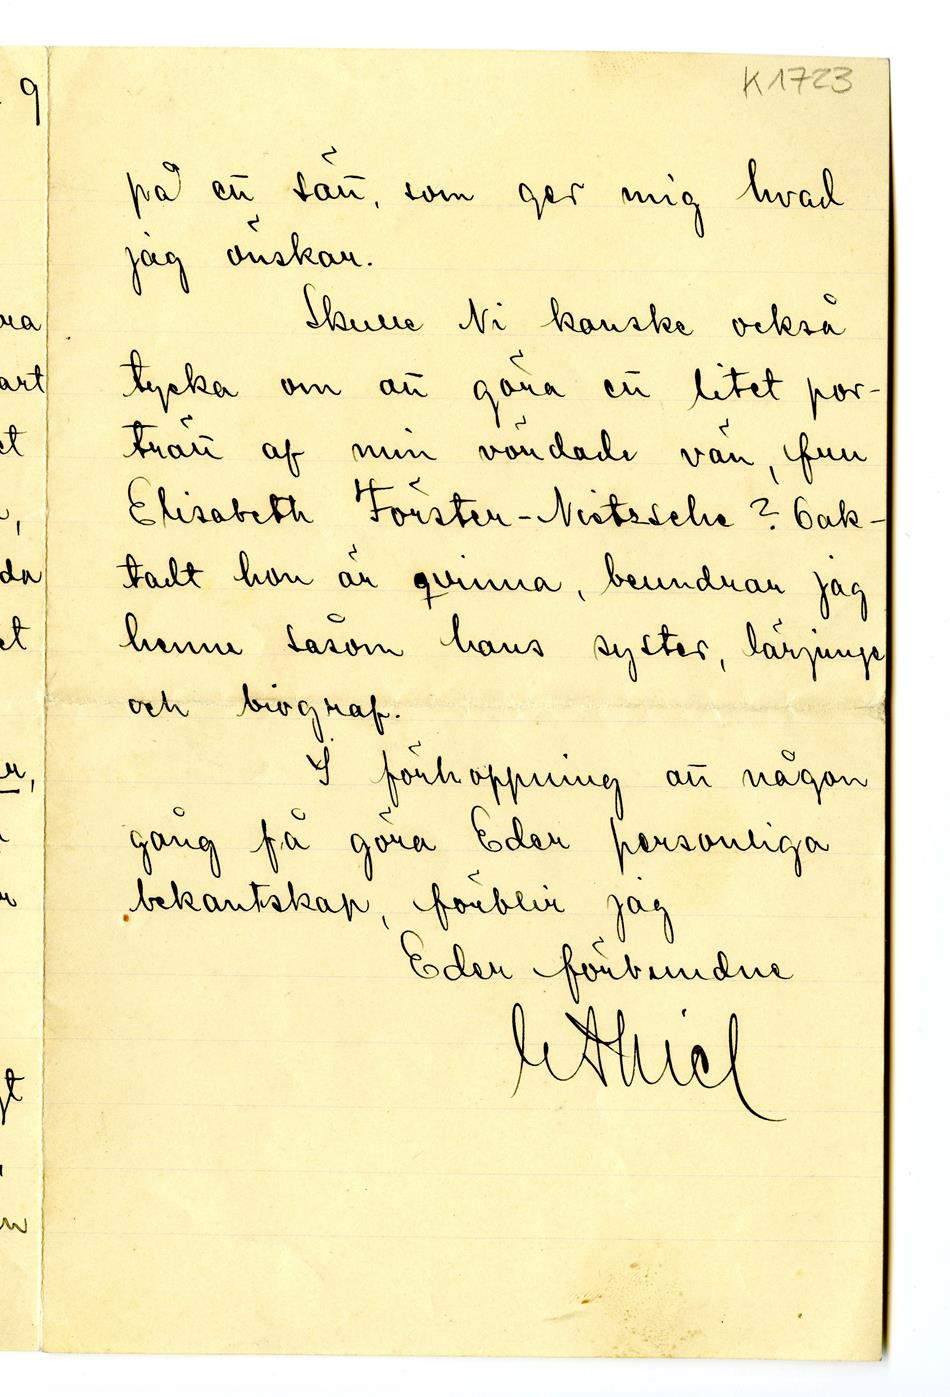 K1723
9
på ett sätt, som ger mig hvad
jag önskar.
Skulle Ni kanske också
tycka om att göra ett litet por-
trätt af min vördade vän, fru
Elisabeth Förster-Nietzsche? Oak-
tadt hon är qvinna, beundrar jag
henne såsom hans syster, lärjunge
och biograf.
I förhoppning att någon
gång få göra Eder personliga
bekantskap, förblir jag
Eder förbundne
Thiel